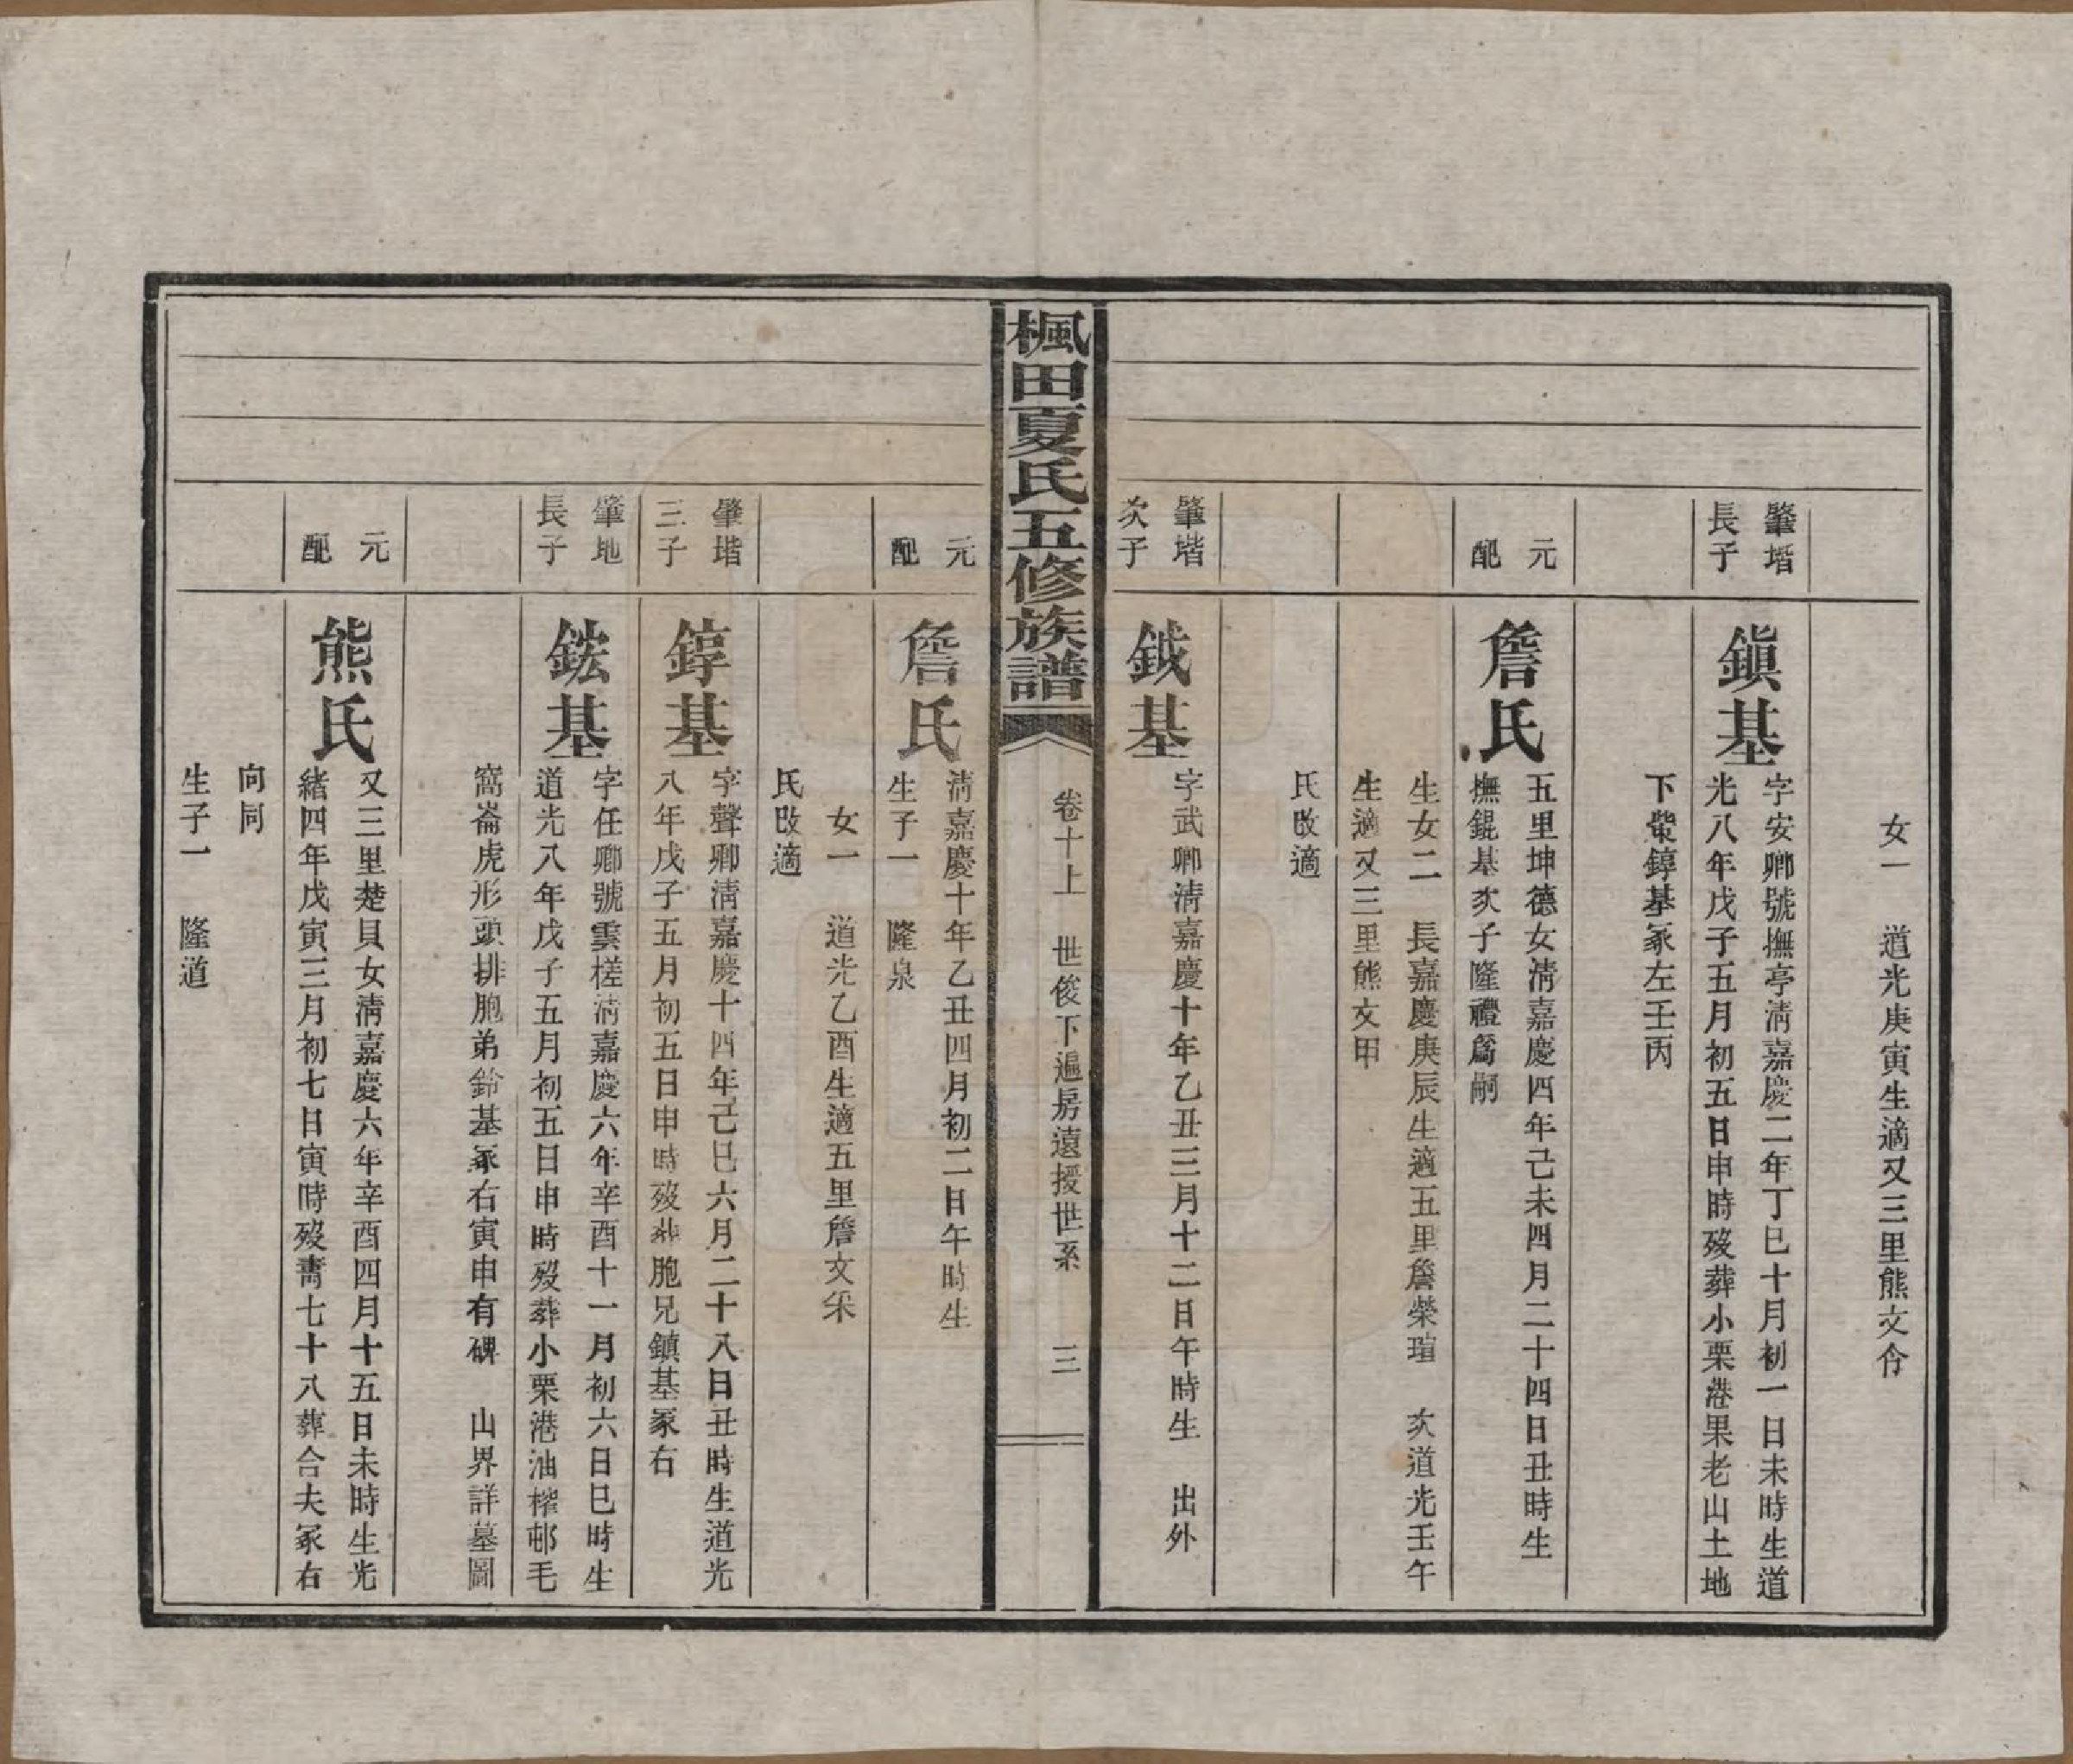 女一　道光庚寅生適又三里熊文佾
肇堦
長子
鎭基
字安卿號撫亭淸嘉慶二年丁巳十月初一日未時生道
光八年戊子五月初五日申時歿葬小栗港果老山土地
下塋錞基冢左壬丙
元配
詹氏
五里坤德女淸嘉慶四年己未四月二十四日丑時生
撫錕基次子隆禮爲嗣
生女二　長嘉慶庚辰生適五里詹榮瑄　次道光壬午
生適又三里熊文甲
氏改適
肇堦
次子
鉞基
字武卿淸嘉慶十年乙丑三月十二日午時生　出外
楓田夏氏五修族譜
卷十上　世俊下遍房遠授世系　三
元配
詹氏
淸嘉慶十年乙丑四月初二日午時生
生子一　隆泉
女一　道光乙酉生適五里詹文采
氏改適
肇堦
三子
錞基
字聲卿淸嘉慶十四年己巳六月二十八日丑時生道光
八年戊子五月初五日申時歿葬胞兄鎭基冢右
肇地
長子
鋐基
字任卿號雲槎淸嘉慶六年辛酉十一月初六日巳時生
道光八年戊子五月初五日申時歿葬小栗港油榨邨毛
窩崙虎形頭排胞弟鈴基冢右寅申有碑　山界詳墓圖
元配
熊氏
又三里楚貝女淸嘉慶六年辛酉四月十五日未時生光
緒四年戊寅三月初七日寅時歿壽七十八葬合夫冢右
向同
生子一　隆道